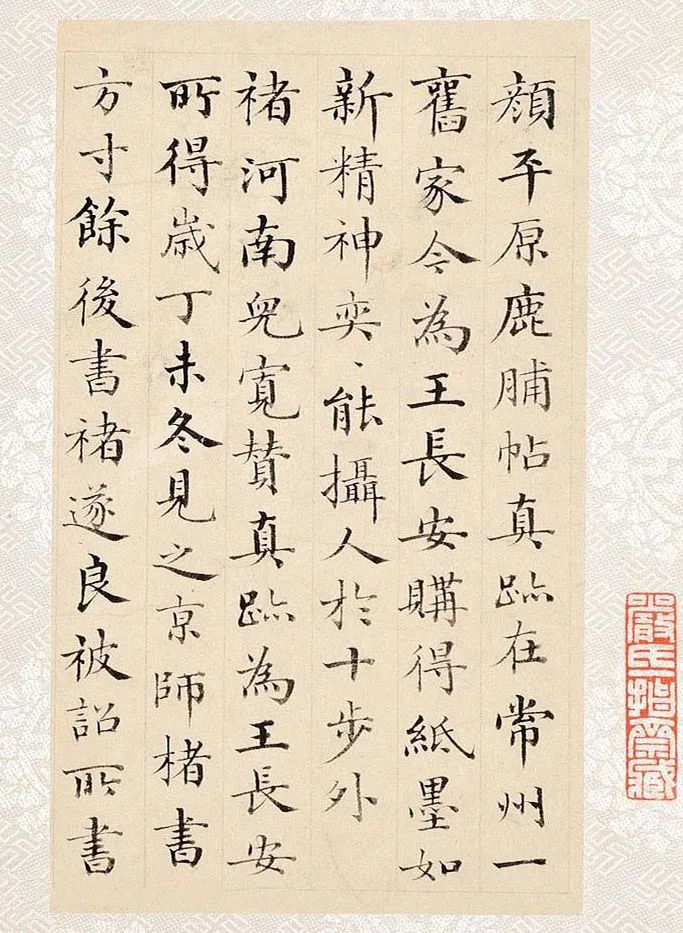 顔平原鹿脯帖真跡在常州一
舊家今為王長安購得紙墨如
新精神奕、能攝人於十步外
褚河南兒寛贊真跡為王長安
所得歲丁未冬見之京師楮書
方寸餘後書褚遂良被詔所書
嚴氏
藏